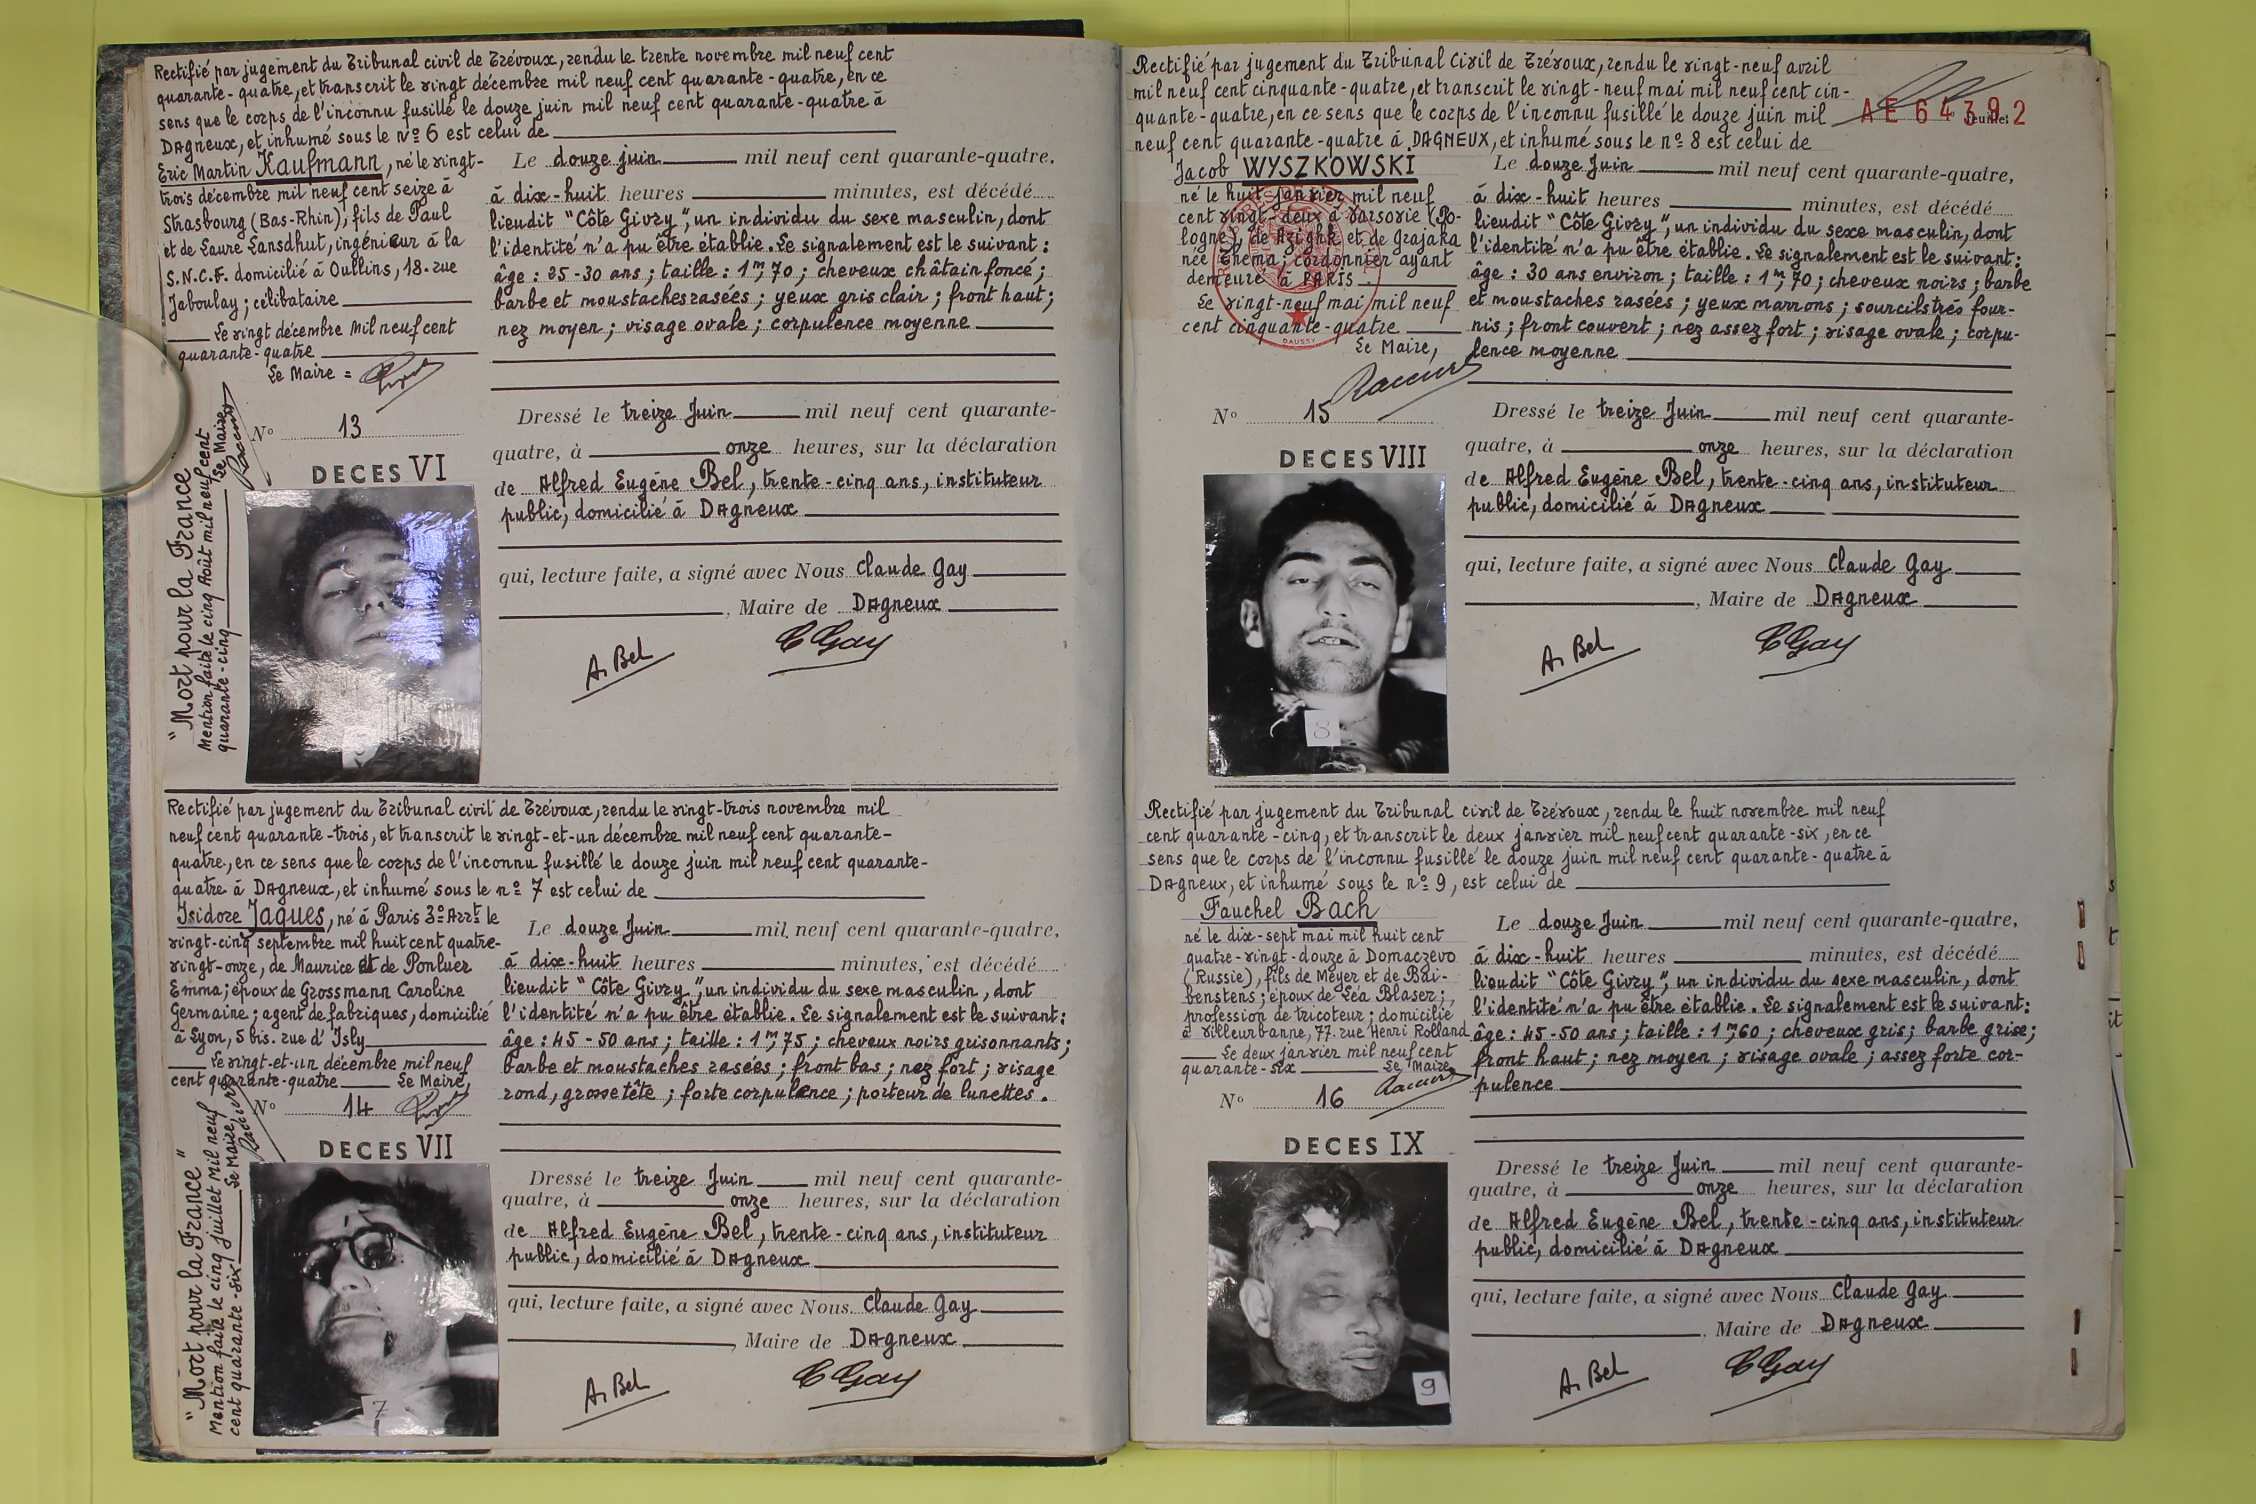 Rectifié par jugement du Tribunal civil de Trévoux, rendu le trente novembre mil neuf cent
quarante-quatre, et transcrit le vingt décembre mil neuf cent quarante-quatre, en ce
sens que le corps de l'inconnu fusillé le douze juin mil neuf cent quarante-quatre à
DAgneux, et inhumé sous le nº 6 est celui de
Eric Martin Kaufmann, né le vingt-
trois décembre mil neuf cent seize à
Strasbourg (Bas-Rhin), fils de Paul
et de Laure Lansdhut, ingénieur à la
S.N.C.F. domicilié à Oullins, 18. rue
Jaboulay; célibataire
Le vingt décembre mil neuf cent
quarante-quatre
Le Maire =
Nº 13
DECES VI
"Mort pour la France
Mention faite le cinq Août mil neuf cent
quarante-cinq Le Maire
Le douze juin mil neuf cent quarante-quatre.
à dix-huit heures minutes, est décédé
lieudit "Côte Givry", un individu du sexe masculin, dont
l'identité n'a pu être établie. Le signalement est le suivant:
âge: 25-30 ans; taille: 1m,70; cheveux châtain foncé;
barbe et moustaches rasées; yeux gris clair; front haut;
nez moyen; visage ovale; corpulence moyenne
Dressé le treize Juin mil neuf cent quarante-
quatre, à onze heures, sur la déclaration
de Alfred Eugène Bel, trente-cinq ans, instituteur
public, domicilié à DAgneux
qui, lecture faite, a signé avec Nous Claude Gay
, Maire de DAgneux
A. Bel C Gay
Rectifié par jugement du Tribunal civil de Trévoux, rendu le vingt-trois novembre mil
neuf cent quarante-trois, et transcrit le vingt-et-un décembre mil neuf cent quarante-
quatre, en ce sens que le corps de l'inconnu fusillé le douze juin mil neuf cent quarante-
quatre à DAgneux, et inhumé sous le nº 7 est celui de
Isidore Jaques, né à Paris 3º Arrt le
vingt-cinq septembre mil huit cent quatre-
vingt-onze, de Maurice et de Ponluer
Emma; époux de Grossmann Caroline
Germaine; agent de fabriques, domicilié
à Lyon, 5 bis. rue d'Isly
Le vingt-et-un décembre mil neuf
cent quarante-quatre Le Maire,
Nº 14
DECES VII
7
"Mort pour la France"
Mention faite le cinq juillet mil neuf
cent quarante-six Le Maire,
Le douze Juin mil neuf cent quarante-quatre,
à dix-huit heures minutes, est décédé
lieudit "Côte Givry", un individu du sexe masculin, dont
l'identité n'a pu être établie. Le signalement est le suivant:
âge: 45-50 ans; taille: 1m,75; cheveux noirs grisonnants;
barbe et moustaches rasées; front bas; nez fort; visage
rond, grosse tête; forte corpulence; porteur de lunettes.
Dressé le treize Juin mil neuf cent quarante-
quatre, à onze heures, sur la déclaration
de Alfred Eugène Bel, trente-cinq ans, instituteur
public, domicilié à DAgneux
qui, lecture faite, a signé avec Nous Claude Gay
, Maire de DAgneux
A. Bel C Gay
Rectifié par jugement du Tribunal Civil de Trévoux, rendu le vingt-neuf avril
mil neuf cent cinquante-quatre, et transcrit le vingt-neuf mai mil neuf cent cin-
quante-quatre, en ce sens que le corps de l'inconnu fusillé le douze juin mil
neuf cent quarante-quatre à DAGNEUX, et inhumé sous le nº 8 est celui de
AE 64392
Jacob WYSZKOWSKI
né le huit janvier mil neuf
cent vingt-deux à Varsovie (Po-
logne), de Azighk et de Grajaka
née Enema; cordonnier ayant
demeuré à PARIS.
Le vingt-neuf mai mil neuf
cent cinquante-quatre
Le Maire,
DAUSSY
Nº 15
DECES VIII
8
Le douze Juin mil neuf cent quarante-quatre,
à dix-huit heures minutes, est décédé
lieudit "Côte Givry", un individu du sexe masculin, dont
l'identité n'a pu être établie. Le signalement est le suivant:
âge: 30 ans environ; taille: 1m,70; cheveux noirs; barbe
et moustaches rasées; yeux marrons; sourcils très four-
nis; front couvert; nez assez fort; visage ovale; corpu-
lence moyenne
Dressé le treize Juin mil neuf cent quarante-
quatre, à onze heures, sur la déclaration
de Alfred Eugène Bel, trente-cinq ans, instituteur
public, domicilié à DAgneux
qui, lecture faite, a signé avec Nous Claude Gay
, Maire de DAgneux
A. Bel C Gay
Rectifié par jugement du Tribunal civil de Trévoux, rendu le huit novembre mil neuf
cent quarante-cinq, et transcrit le deux janvier mil neuf cent quarante-six, en ce
sens que le corps de l'inconnu fusillé le douze juin mil neuf cent quarante-quatre à
DAgneux, et inhumé sous le nº 9, est celui de
Fauchel Bach
né le dix-sept mai mil huit cent
quatre-vingt-douze à Domaczevo
(Russie), fils de Meyer et de Bai-
benstens; époux de Léa Blaser;
profession de tricoteur; domicilié
à Villeurbanne, 77. rue Henri Rolland
Le deux janvier mil neuf cent
quarante-six Le Maire
Nº 16
DECES IX
9
Le douze Juin mil neuf cent quarante-quatre,
à dix-huit heures minutes, est décédé
lieudit "Côte Givry", un individu du sexe masculin, dont
l'identité n'a pu être établie. Le signalement est le suivant:
âge: 45-50 ans; taille: 1m,60; cheveux gris; barbe grise;
front haut; nez moyen; visage ovale; assez forte cor-
pulence
Dressé le treize Juin mil neuf cent quarante-
quatre, à onze heures, sur la déclaration
de Alfred Eugène Bel, trente-cinq ans, instituteur
public, domicilié à DAgneux
qui, lecture faite, a signé avec Nous Claude Gay
, Maire de DAgneux
A. Bel C Gay